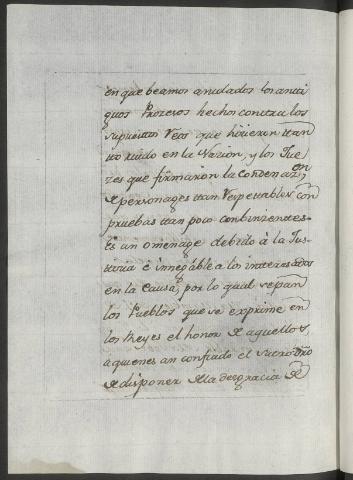 en que beamos anulados los anti
guos Prozesos hechos contra los
supuestos Reos que hizieron tan
to ruido en la Nazion, y los Jue
zes que firmaron la Condenazn
de personages tan Respettables con
pruebas tan poco conbinzentes
es un omenage debido à la Jus
ticia è innegable a los interesados
en la Causa, por lo qual sepan
los Pueblos que se exprime en
los Reyes el honor de aquellos,
a quienes an confiado el sacro dro
de disponer de la desgracia de